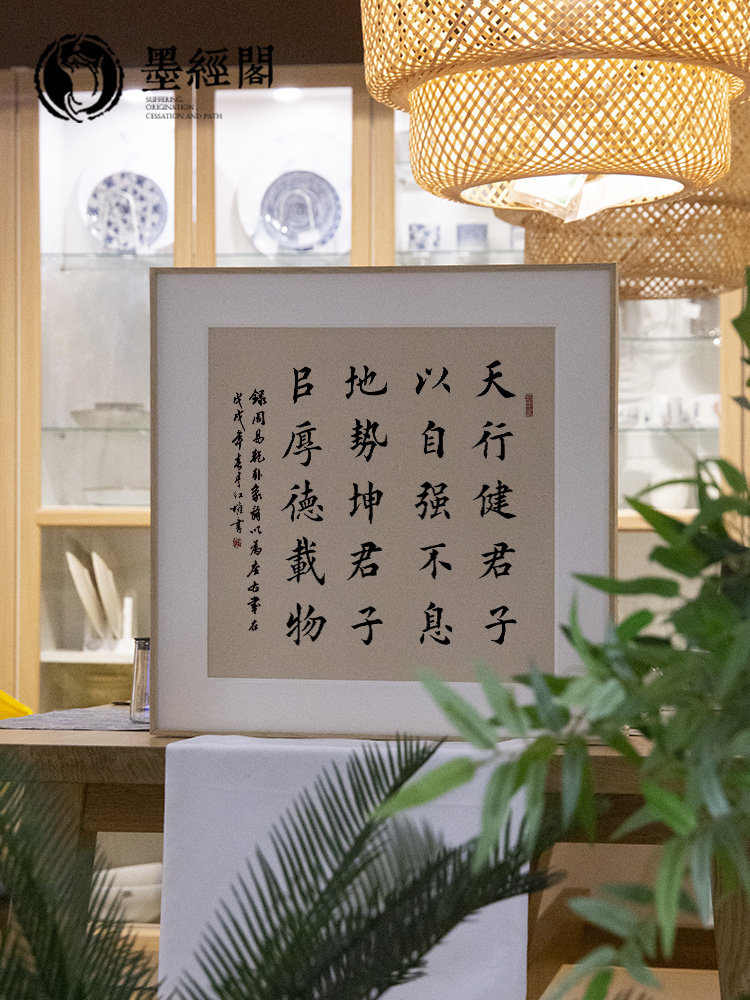 墨經閣
SUFFERING,
ORIGINATION
CESSATION AND PATH
天行健君子
以自强不息
地势坤君子
㠯厚德載物
録周易乾卦象以為座右歲在
戊戌年春月江書